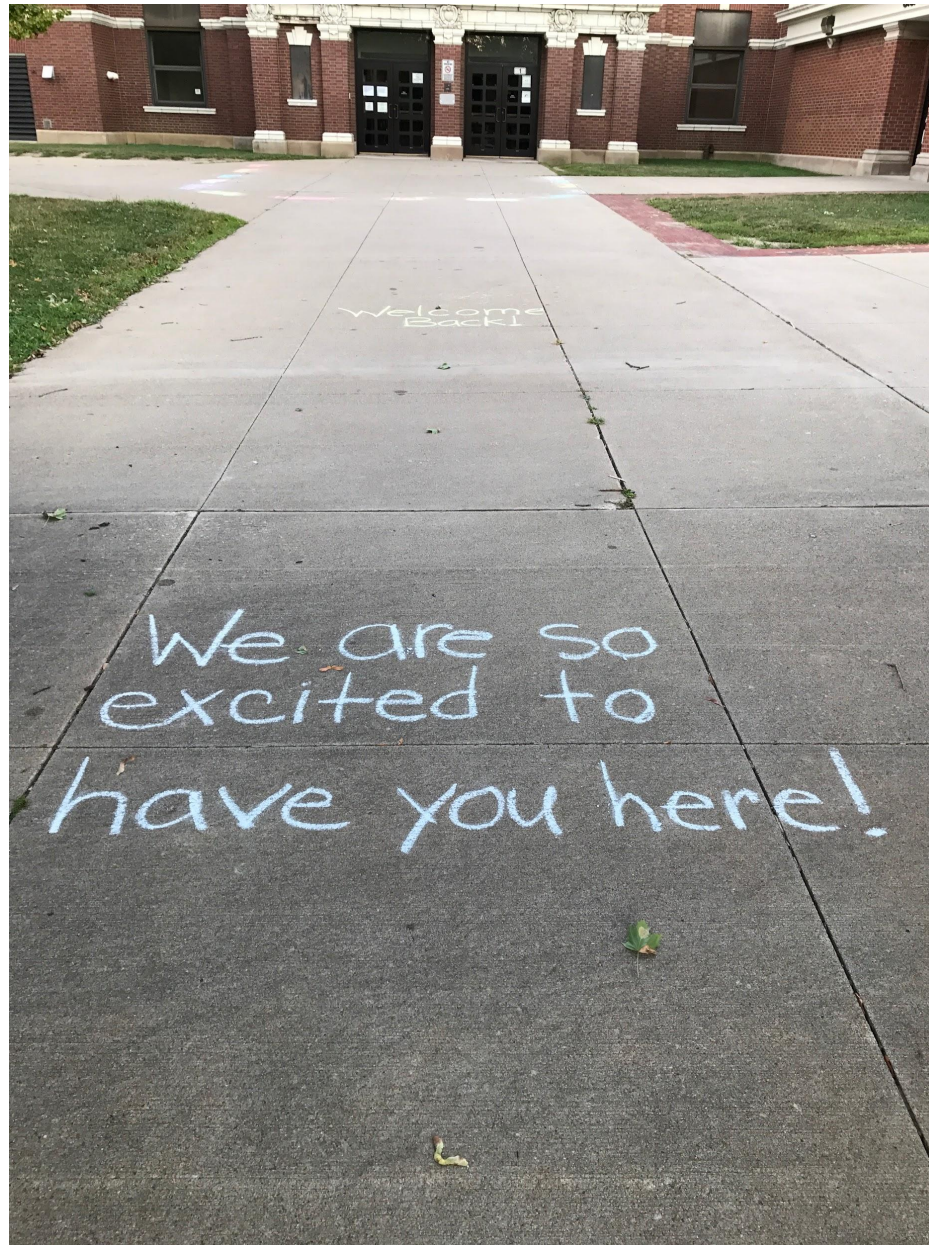 Welcome
Back!
We are so
excited to
have you here!